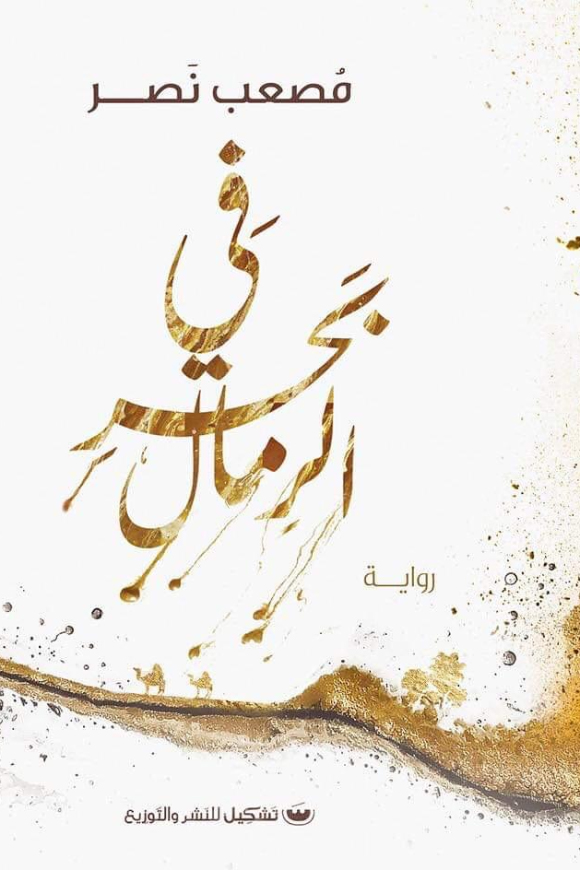 مُصعب نَصر
فَي
بَحر
الرِمال
رواية
تَشكِيل للنَشر والتَوزِيع